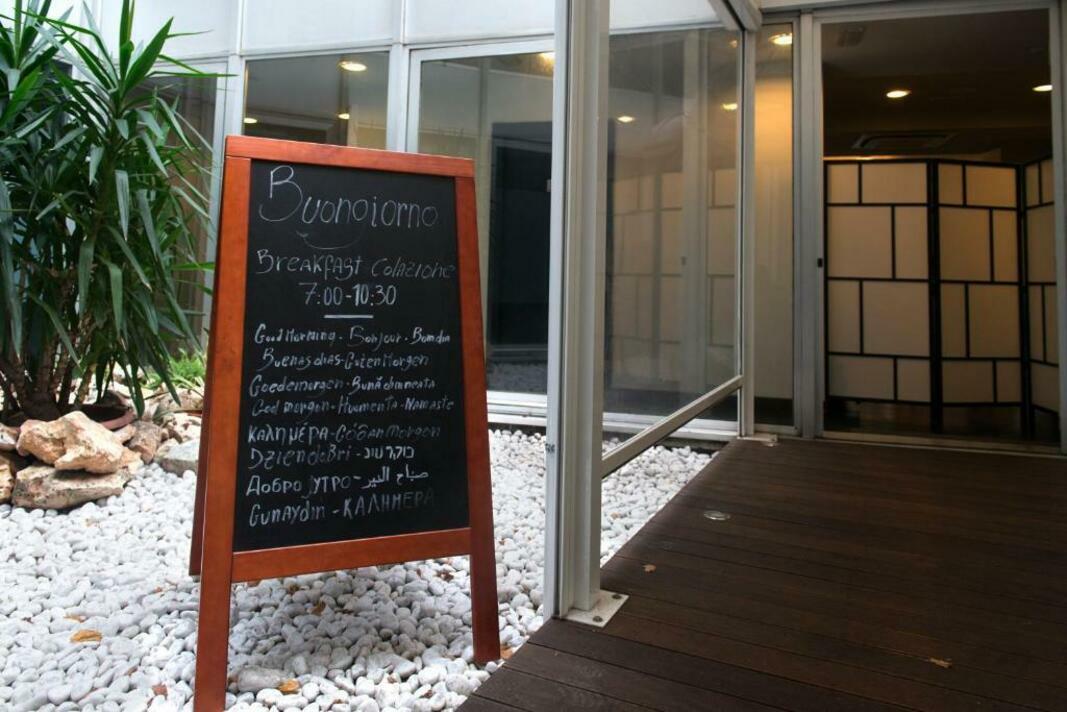 Buongiorno
Breakfast Colazione
7:00-10:30
Good Morning - Bonjour - Bom dia
Buenas dias - Guten Morgen
Goedemorgen - Bună dimineata
God morgon - Huomenta - Namaste
ΚΑΛΗΜΈΡΑ - Godan Morgon
Dzien dobri - בוקר טוב
Добро јутро - صباح الخير
Gunaydin - ΚΑΛΗΜΕΡΑ